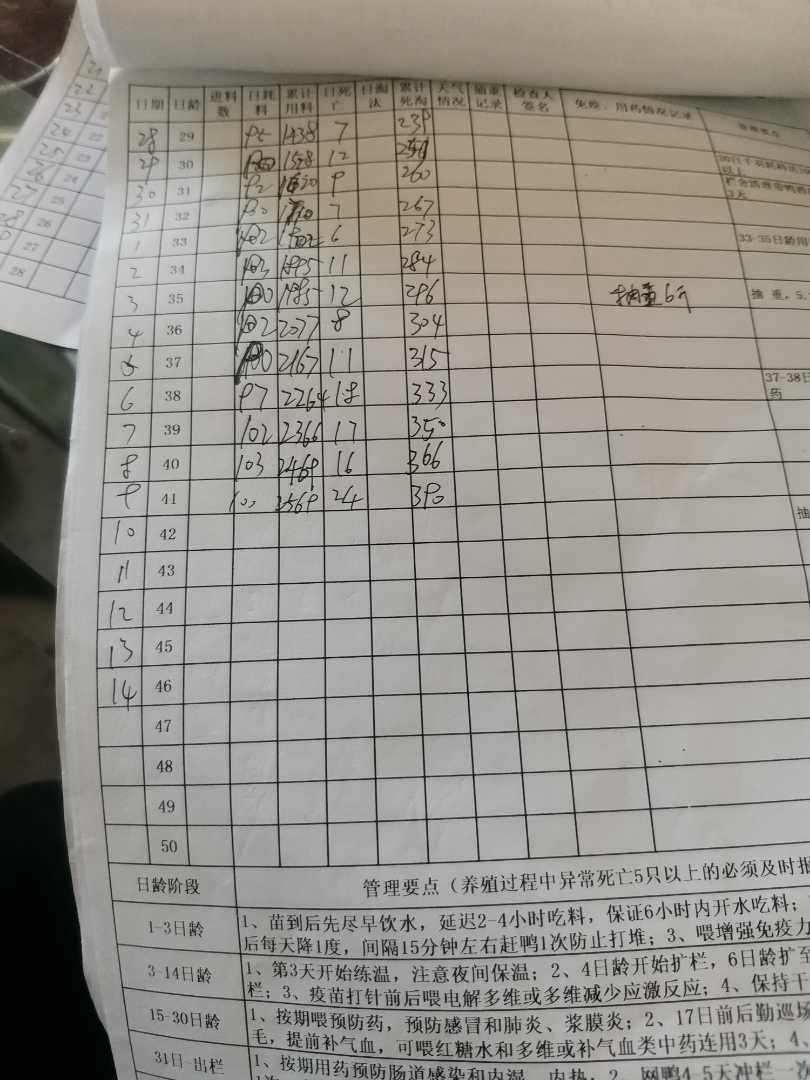 日期 日龄 进料数 日耗料 累计用料 日死亡 日淘汰 累计死淘 天气情况 检查人签名 免疫、用药情况记录 管理要点
28 29 95 1438 7 239
29 30 12
30 31 92 9 260
31 32 7 267
1 33 102 6 273
2 34 103 1895 11 284
3 35 100 1985 12 296 抽重6斤 抽重,5.
4 36 102 2077 8 304
5 37 100 2167 11 315
6 38 97 2264 18 333
7 39 102 2366 17 350
8 40 103 2469 16 366
9 41 100 2569 24 390
10 42
11 43
12 44
13 45
14 46
47
48
49
50
33-35日龄用
37-38日
药
抽
日龄阶段 管理要点(养殖过程中异常死亡5只以上的必须及时报
1-3日龄 1、苗到后先尽早饮水,延迟2-4小时吃料,保证6小时内开水吃料;
后每天降1度,间隔15分钟左右赶鸭1次防止打堆;3、喂增强免疫力
3-14日龄 1、第3天开始练温,注意夜间保温;2、4日龄开始扩栏,6日龄扩至
栏;3、疫苗打针前后喂电解多维或多维减少应激反应;4、保持干
15-30日龄 1、按期喂预防药,预防感冒和肺炎、浆膜炎;2、17日前后勤巡场
毛,提前补气血,可喂红糖水和多维或补气血类中药连用3天;4、
31日-出栏 1、按期用药预防肠道感染和内湿、内热,2、网鸭4-5天冲栏一次